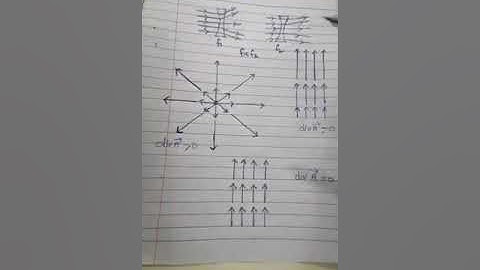 f₁ f₂
f₁<f₂
div A⃗ >0
div A⃗ >0
div A⃗ =0